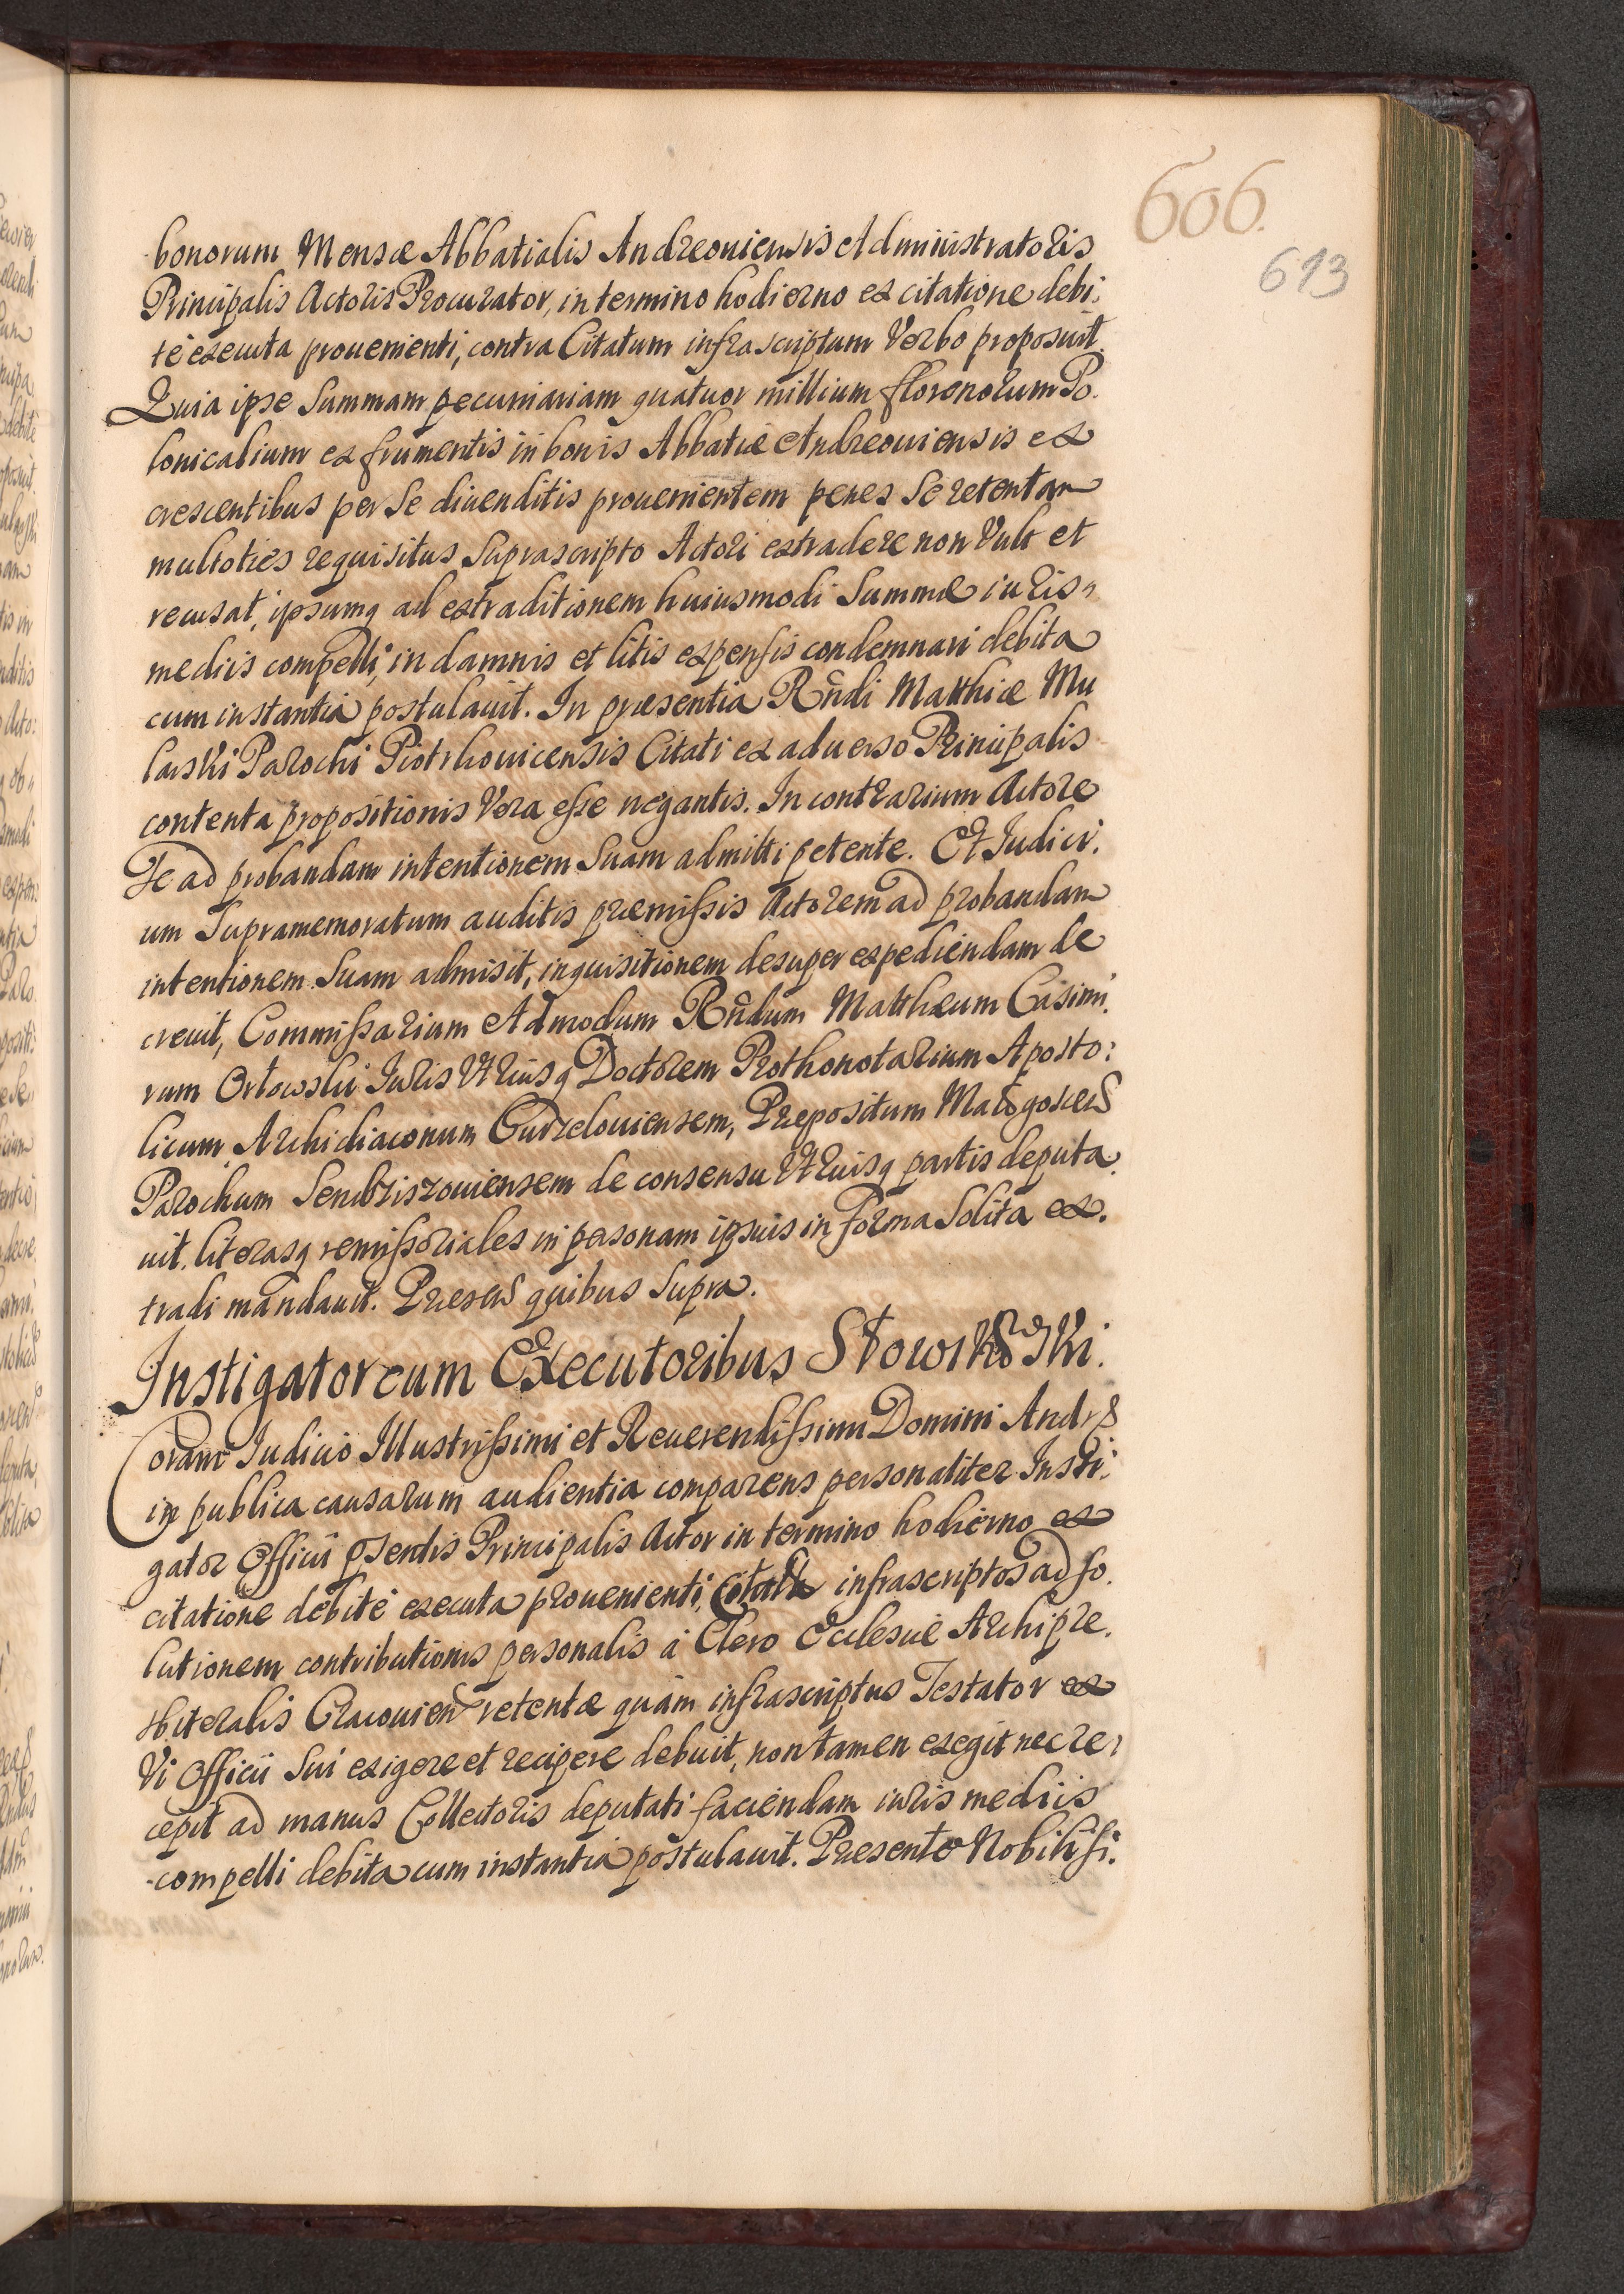 606.
613
bonorum Mensæ Abbatialis Andreouiensis Administratoris
Principalis Actoris Procurator, in termino hodierno ex citatione debi:
té executa prouenienti, contra Citatum infrascriptum Verbo proposuit.
Quia ipse Summam pecuniariam quatuor millium florenorum Po.
lonicalium ex frumentis in bonis Abbatiæ Andreouiensis ex
crescentibus per Se diuenditis prouenientem penes Se retentam
multoties requisitus Suprascripto Actori extradere non Vult et
recusat, ipsumq ad extraditionem huiusmodi Summæ iuris
medijs compelli, in damnis et litis expensis condemnari debita
cum instantia postulauit. In præsentia Rndi Matthiæ Mu
larski Parochi Piotrkouicensis Citati ex aduerso Principalis
contenta propositionis Vera esse negantis. In contrarium Actore
Se ad probandam intentionem Suam admitti petente. Et Iudici.
um Supramemoratum auditis præmissis Actorem ad probandam
intentionem Suam admisit, inquisitionem desuper expediendam de
creuit, Commissarium Admodum Rndum Matthæum Casimi.
rum Orłowski Iuris Vtriusq Doctorem Prothonotarium Aposto:
licum Archidiaconum Curzelouiensem, Præpositum Małogoscen
Parochum Sendziszouiensem de consensu Vtriusq partis deputa.
uit, literasq remissoriales in personam ipsius in forma Solita ex.
tradi mandauit. Præsen quibus Supra.
Instigator cum Executoribus Słowiński.
Coram Iudicio Illustrissimi et Reuerendissimi Domini Andr
in publica causarum audientia comparens personaliter Insti.
gator Officii psentis Principalis Actor in termino hodierno ex
citatione debité executa prouenienti, Citatos infrascriptos ad so.
lutionem contributionis personalis á Clero Ecclesiæ Archipre.
sbiteralis Cracouien retentæ quam infrascriptus Testator ex
Vi Officii Sui exigere et recipere debuit, non tamen exegit nec re
cepit ad manus Collectoris deputati faciendam iuris medijs
compelli debita cum instantia postulauit. Præsente Nobili Si.